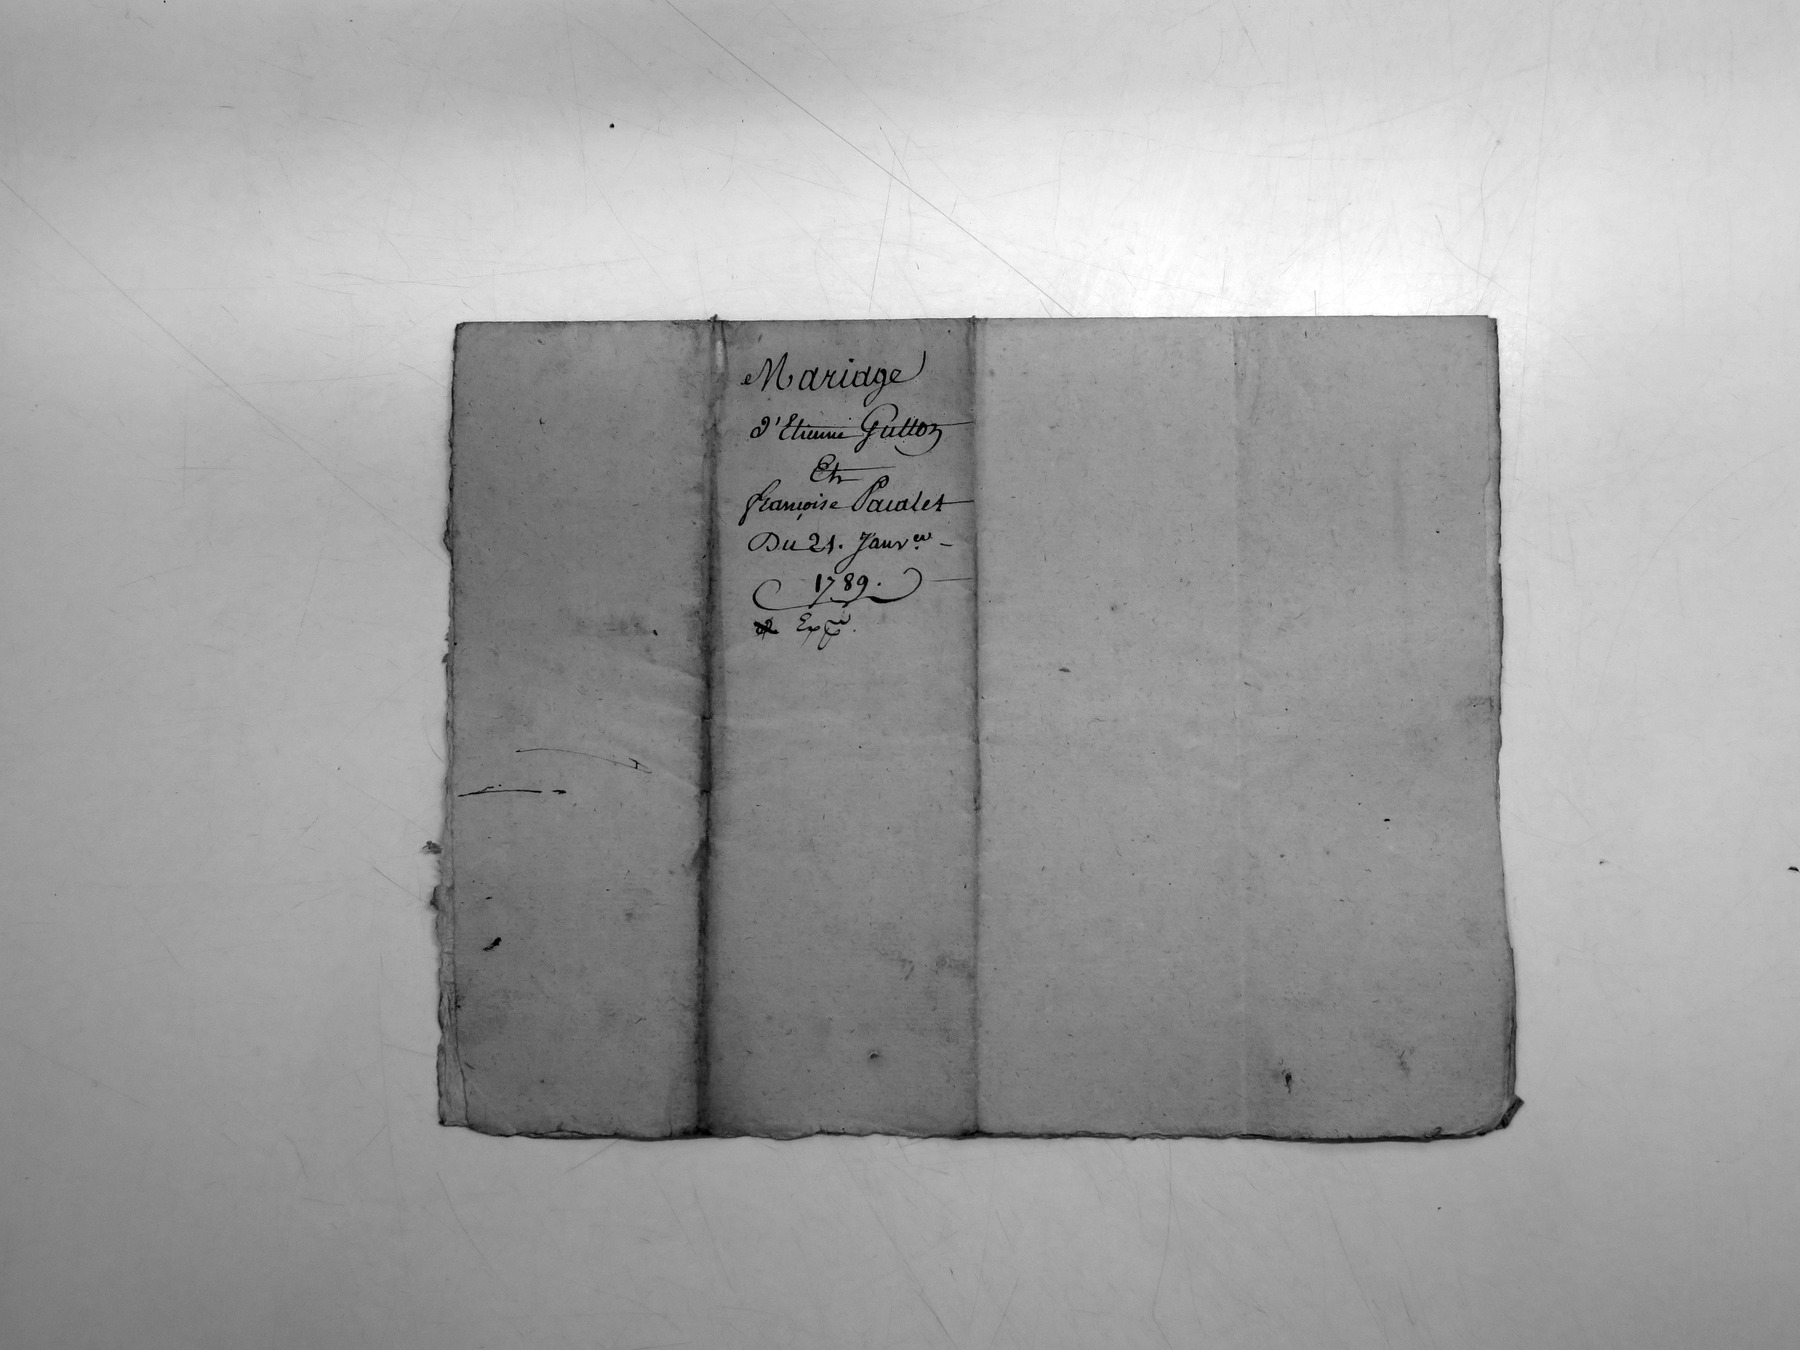 Mariage
d'Etienne Gutton
Et
françoise Pacalet
Du 21. Janv.er
1789.
Exp.